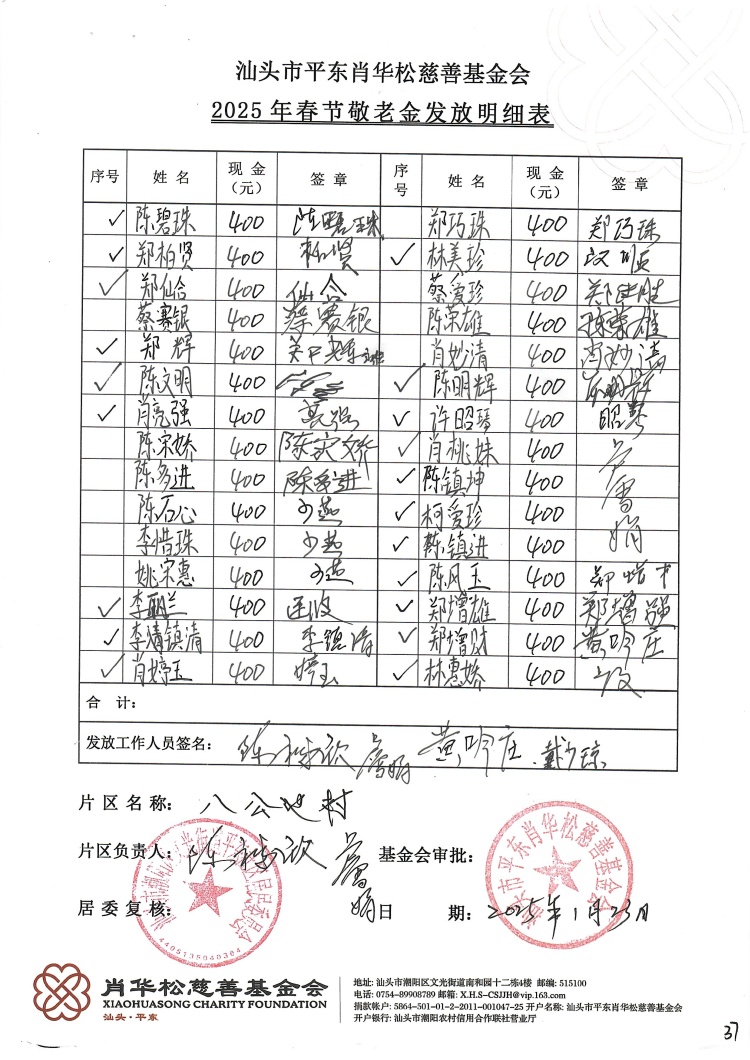 汕头市平东肖华松慈善基金会
2025 年春节敬老金发放明细表
序号 姓名 现金（元） 签章 序号 姓名 现金（元） 签章
✓ 陈碧珠 400 陈碧珠 郑巧珠 400 郑巧珠
✓ 郑柏贤 400 柏贤 ✓ 林美珍 400
✓ 郑仙合 400 仙合 蔡爱珍 400
蔡赛银 400 蔡赛银 陈荣雄 400 陈荣雄
✓ 郑辉 400 肖妙清 400 肖妙清
✓ 陈文明 400 ✓ 陈明辉 400
✓ 肖亮强 400 亮强 ✓ 许昭琴 400 昭琴
陈宋娇 400 陈宋娇 ✓ 肖桃妹 400
陈多进 400 陈多进 ✓ 陈镇坤 400
陈石心 400 少燕 ✓ 柯爱珍 400
李惜珠 400 少燕 ✓ 陈镇进 400
姚宋惠 400 少燕 ✓ 陈凤玉 400
✓ 李丽兰 400 ✓ 郑增雄 400 郑增强
✓ 李镇清 400 李镇清 ✓ 郑增财 400 黄吟庄
✓ 肖婷玉 400 婷玉 ✓ 林惠娇 400
合 计：
发放工作人员签名： 黄吟庄 戴少琼
片区名称： 八公地村
片区负责人： 基金会审批：
居委复核： 日 期： 2025年1月23日
汕头市平东肖华松慈善基金会
4405135040384
肖华松慈善基金会
XIAOHUASONG CHARITY FOUNDATION
汕头·平东
地址: 汕头市潮阳区文光街道南和园十二栋4楼 邮编: 515100
电话: 0754-89908789 邮箱: X.H.S-CSJJH@vip.163.com
捐款帐户: 5864-501-01-2-2011-001047-25 开户名称: 汕头市平东肖华松慈善基金会
开户银行: 汕头市潮阳农村信用合作联社营业厅
37